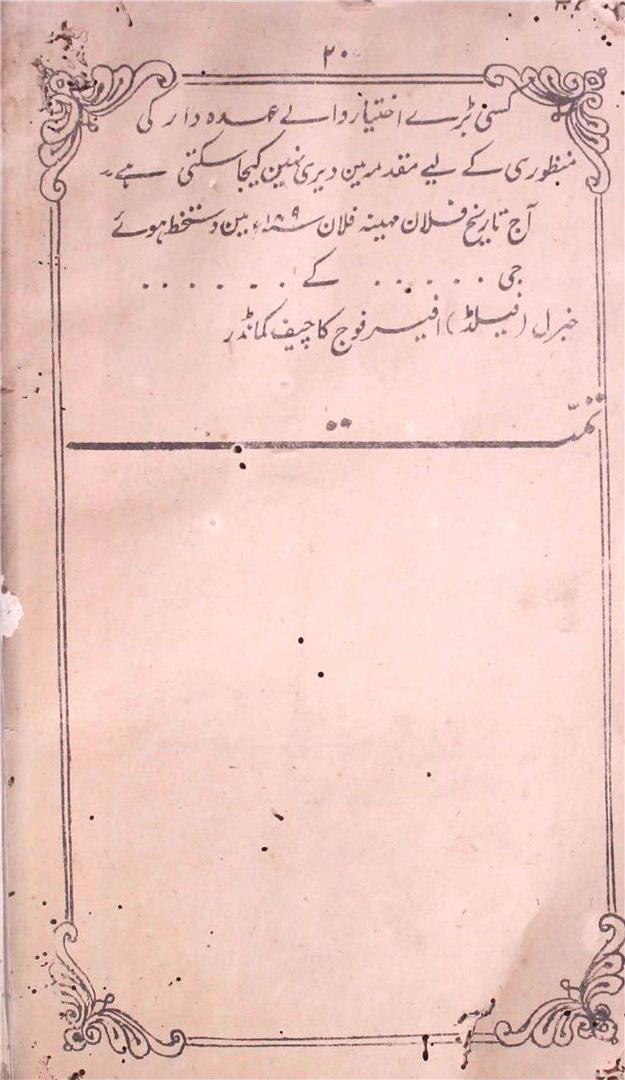 ۲۰
کسی بڑے اختیار والے عہدہ دار کی
منظوری کے لیے مقدمہ مین دیری نہین کیجا سکتی ہے۔
آج تاریخ فلان مہینہ فلان سنہ ۱۸۹ء مین دستخط ہوئے
جی . . . . . . کے . . . . . .
جنرل (فیلڈ) افیسر فوج کا چیف کمانڈر
تمت